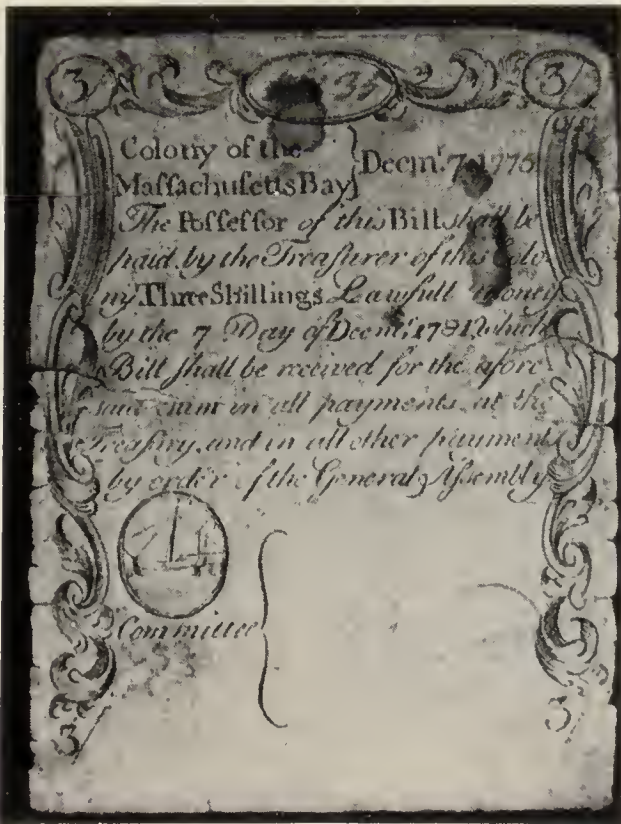 3 3s 3/
Colony of the
Maſſachuſetts Bay } Decmr. 7. 1775
The Poſſeſſor of this Bill ſhall be
paid by the Treaſurer of this Colo
ny Three Shillings Lawfull money
by the 7 Day of Decmr. 1781 which
Bill ſhall be received for the afore
said ſum in all payments at the
Treaſury and in all other payments
by order of the General Aſſembly
Committee
3 3